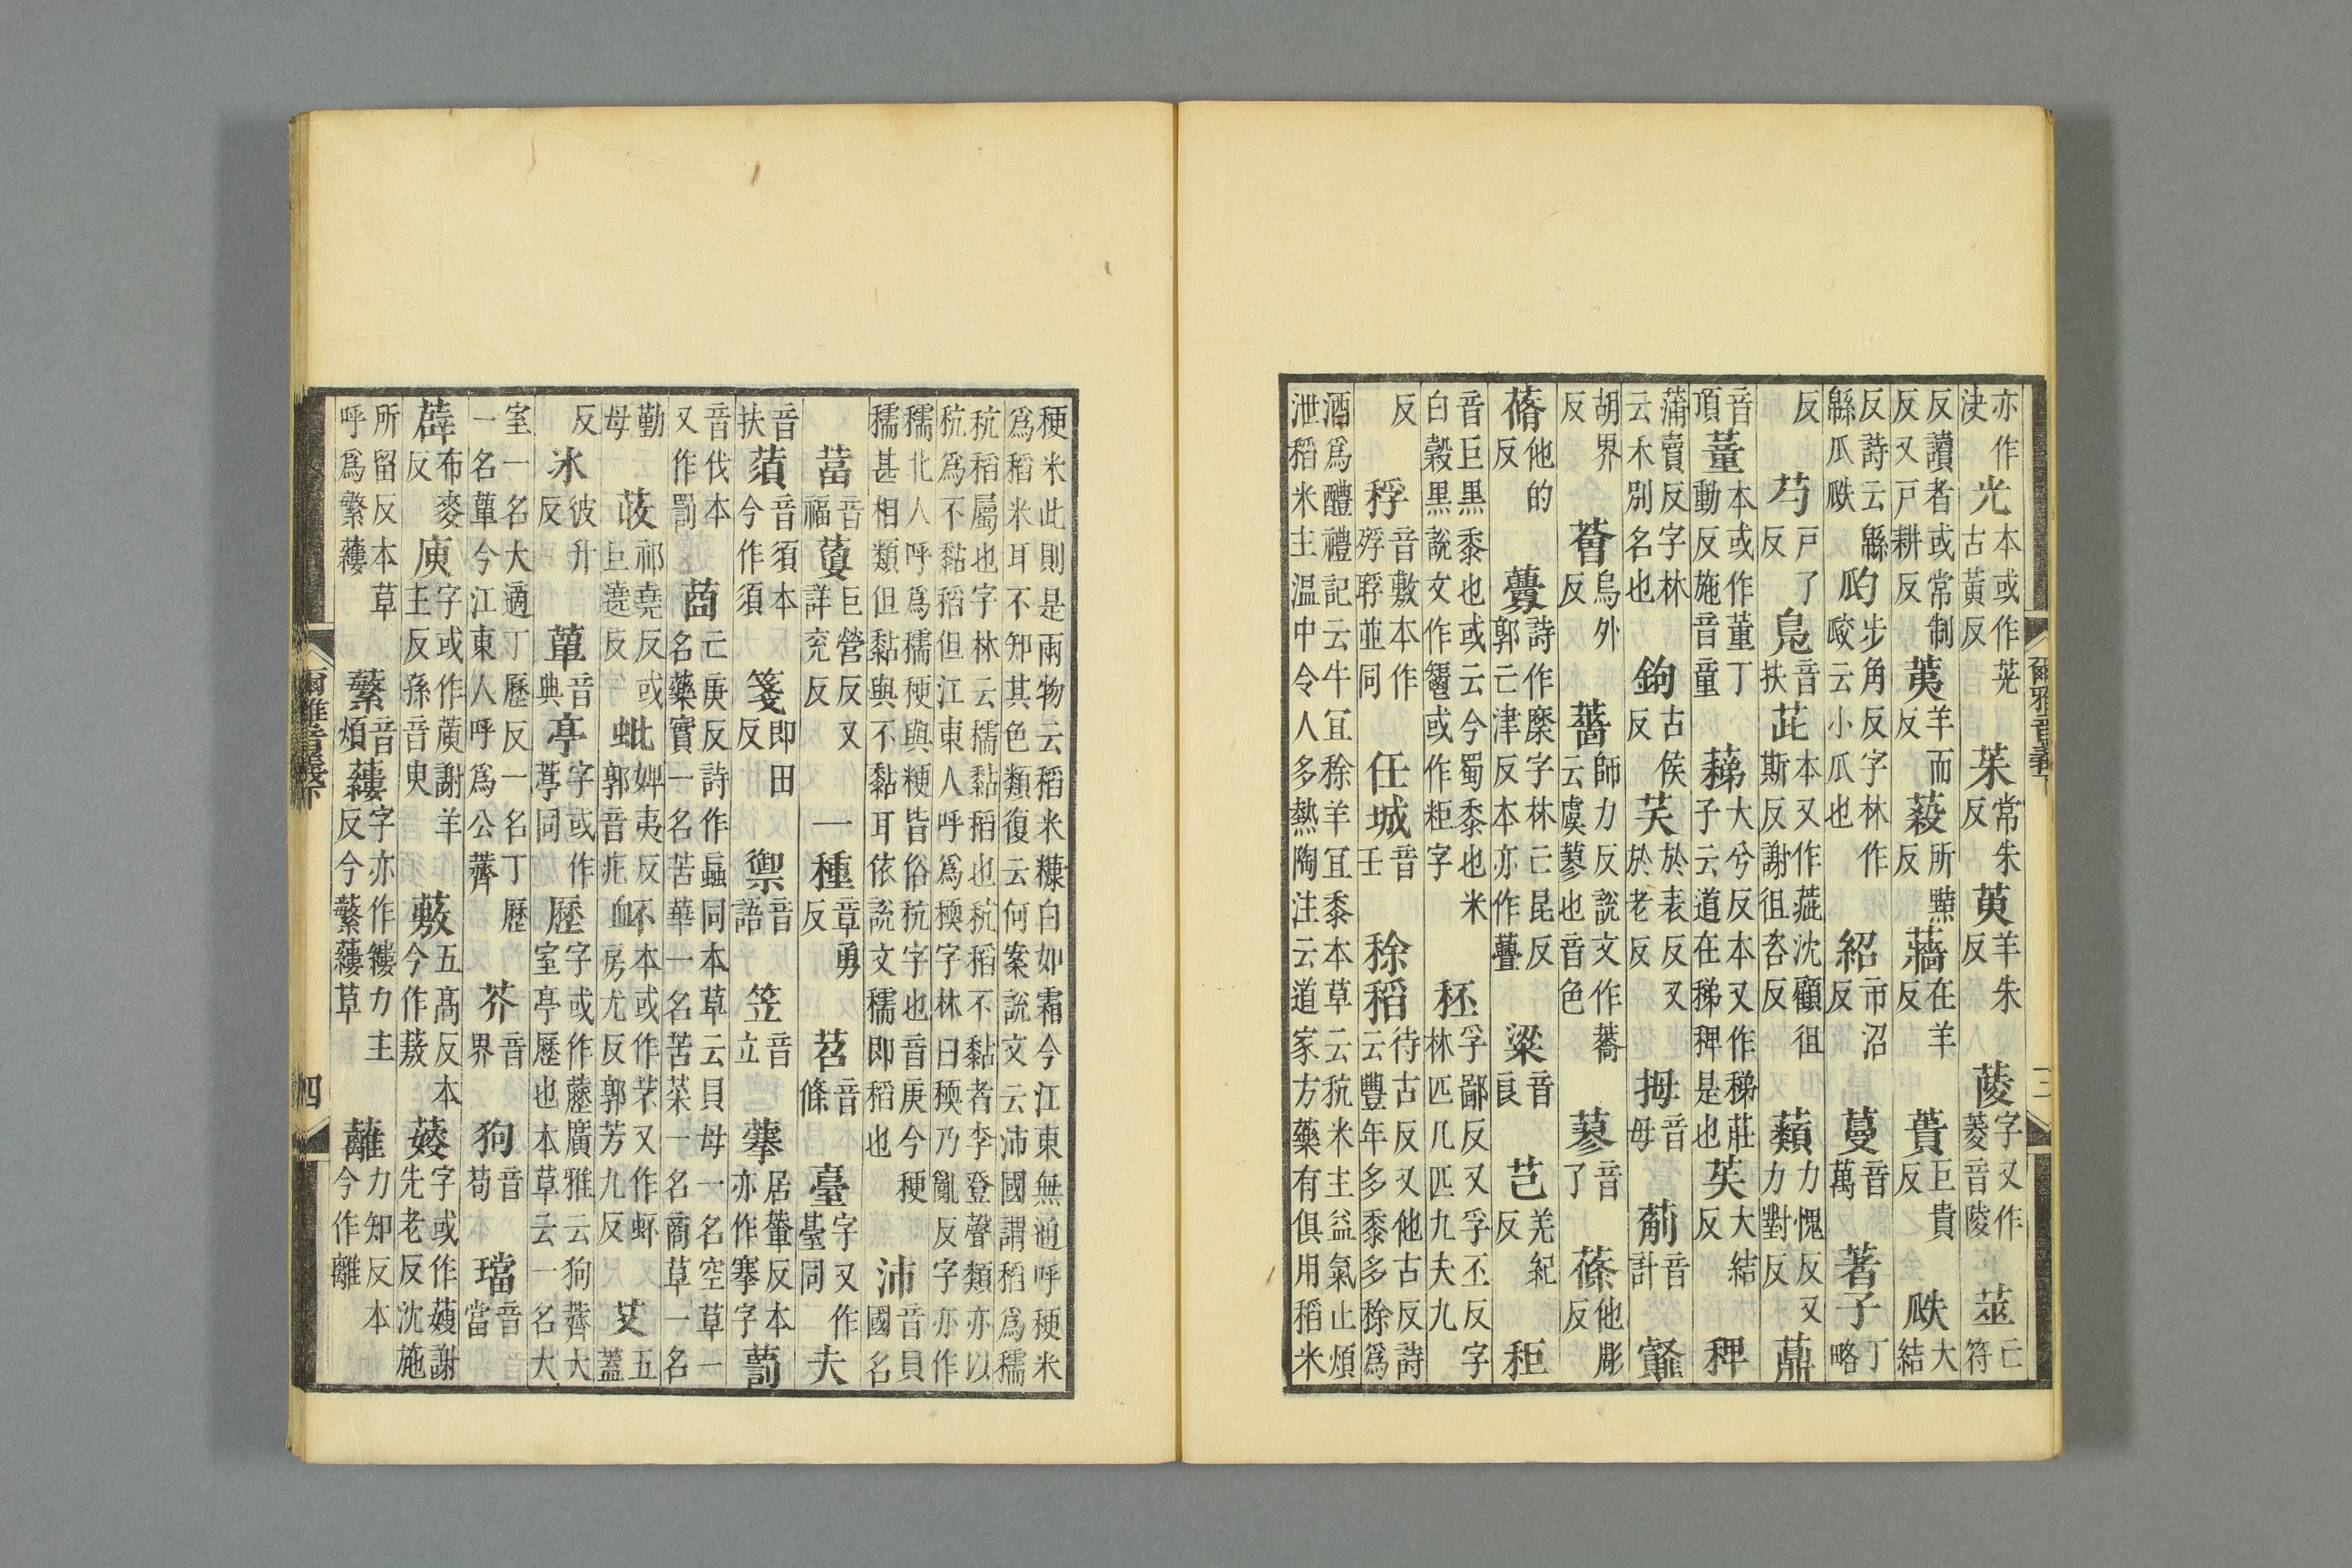 亦作決光本或作茪古黃反茱常朱反萸羊朱反蔆字又作菱音陵莁亡符
反讀者或常制反又戸耕反荑羊而反蔱所黠反蘠在羊反蕢巨貴反瓞大結
反詩云緜緜瓜瓞瓝步角反字林作㼎云小瓜也紹市沼反蔓音萬著子丁略
反芍戸了反鳧音扶茈本又作沈顧徂斯反謝徂咨反藾力愧反又力對反薡
音頂董本或作董丁動反施音童蕛大兮反本又作稊莊子云道在稊稗是也苵大結反稗
蒲賣反字林云禾別名也鉤古侯反芺於表反又於老反拇音母葪音計
胡界反薈烏外反薔師力反說文作云虞蓼也音色蓼音了蓧他彫反
蓨他的反虋詩作穈字林亡昆反郭亡津反本亦作粱音良芑羌紀反秬
音巨黒黍也或云今蜀黍也米白穀黒說文作或作粔字秠孚鄙反又孚丕反字林匹几匹九夫九
反稃音敷本作並同任城音壬稌稻待古反又他古反詩云豐年多黍多稌爲
酒爲醴禮記云牛宜稌羊宜黍本草云秔米主益氣止煩泄稻米主温中令人多熱陶注云道家方藥有俱用稻米
稉米此則是兩物云稻米穅白如霜今江東無通呼稉米爲稻米耳不知其色類復云何案說文云沛國謂稻爲穤
秔稻屬也字林云穤黏稻也秔稻不黏者李登聲類亦以秔爲不黏稻但江東人呼爲稬字林曰稬乃亂反字亦作
穤北人呼爲穤稉與粳皆俗秔字也音庚今稉穤甚相類但黏與不黏耳依說文穤即稻也沛音貝國名
葍音福藑巨營反又詳兖反一種章勇反苕音條臺字又作薹同夫
音扶蕦音須本今作須箋即田反禦音語笠音立藆居輦反本亦作搴字藅
音伐本又作罰莔亡庚反詩作蝱同本草云貝母一名空草一名藥實一名苦華一名苦菜一名商草一名
勤母荍祁堯反或巨遶反蚍婢夷反郭音疪衃不本或作芣又作衃房尤反郭芳九反艾五蓋
反氷彼升反蕇音典亭字或作葶同歷字或作藶廣雅云狗薺大室亭歷也本草云一名大
室一名大適丁歷反一名丁歷一名蕇今江東人呼爲公薺芥音界狗音苟璫音當
薜布麥反庾字或作謝羊主反孫音臾蔜五髙反本今作䕅字或作謝先老反沈施
所留反本草呼爲蘩蔞蘩音煩蔞字亦作縷力主反今蘩蔞草蘺力知反本今作離
爾雅音義下
三
爾雅音義下
四